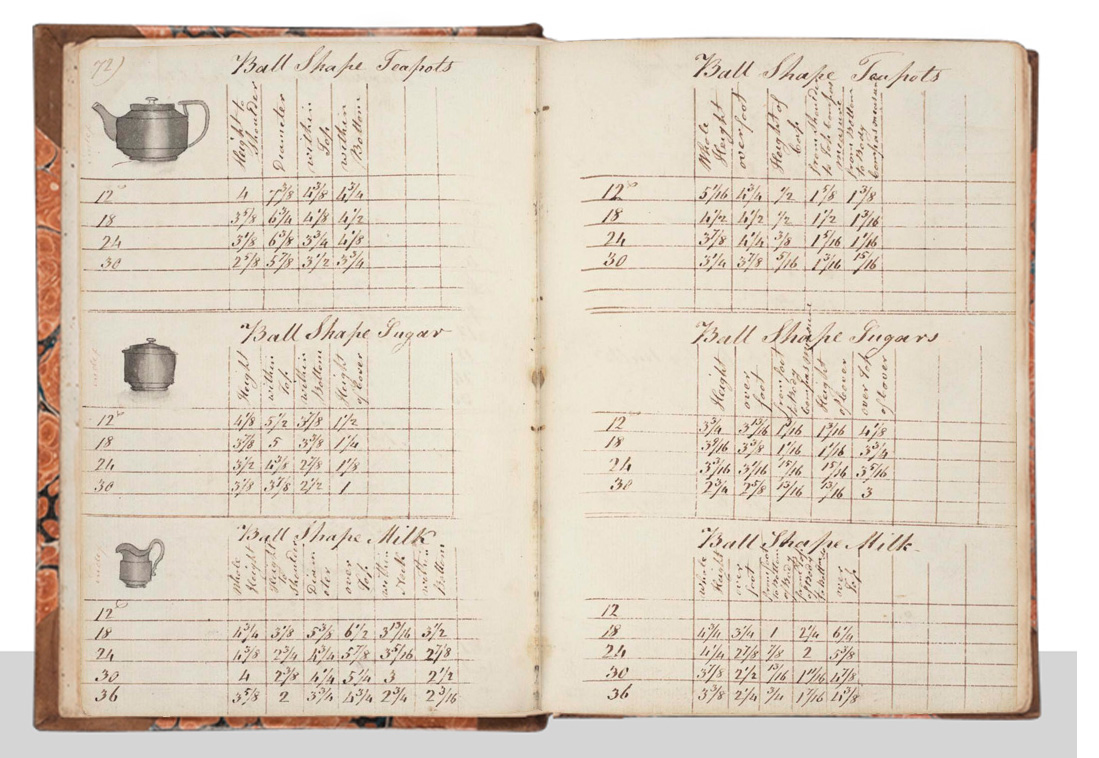 72)
Ball Shape Teapots
Height to Shoulder
Diameter
within Top
within Bottom
12 4 7 3/8 4 3/8 4 3/4
18 3 5/8 6 3/4 4 1/8 4 1/2
24 3 1/8 6 3/8 3 3/4 4 1/8
30 2 5/8 5 7/8 3 1/2 3 3/4
Ball Shape Sugar
Height
within Top
within Bottom
Height of Cover
12 4 1/8 5 1/2 3 7/8 1 1/2
18 3 7/8 5 3 3/8 1 1/4
24 3 1/2 4 3/8 2 7/8 1 1/8
30 3 1/8 3 7/8 2 1/2 1
Ball Shape Milk
Whole Height
Height to Shoulder
Diameter
over Top
within Neck
within Bottom
12
18 4 3/4 3 1/8 5 3/8 6 1/2 3 13/16 3 1/2
24 4 3/8 2 3/4 4 3/4 5 7/8 3 5/16 2 7/8
30 4 2 3/8 4 1/4 5 1/4 3 2 1/2
36 3 5/8 2 3 3/4 4 3/4 2 3/4 2 3/16
Ball Shape Teapots
Whole Height
over foot
Height of Top
from Shoulder to
measure
from Bottom to Body
compas measure
12 5 1/16 4 3/4 1/2 1 5/8 1 3/8
18 4 1/2 4 1/2 1/2 1 1/2 1 3/16
24 3 7/8 4 1/4 3/8 1 5/16 1 1/16
30 3 1/4 3 7/8 5/16 1 3/16 15/16
Ball Shape Sugars
Height
over foot
from foot to Body
compas measure
Height of Cover
over Top of Cover
12 3 3/4 3 13/16 1 3/16 1 3/16 4 1/8
18 3 9/16 3 3/8 1 1/16 1 1/16 3 3/4
24 3 3/16 3 1/16 15/16 15/16 3 5/16
30 2 3/4 2 5/8 13/16 13/16 3
Ball Shape Milk
Whole Height
over foot
from foot to Bottom of Body
from Top of Body
over Top
12
18 4 3/4 3 1/4 1 2 1/4 6 1/4
24 4 1/4 2 7/8 7/8 2 5 3/8
30 3 7/8 2 1/2 13/16 1 11/16 4 7/8
36 3 3/8 2 1/4 3/4 1 7/16 4 3/8